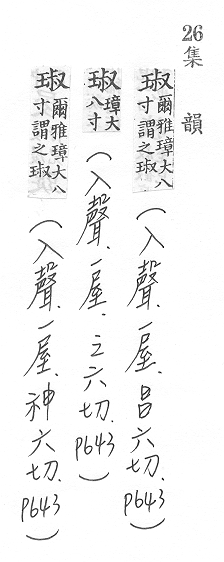 26集　韻
琡爾雅璋大八寸謂之琡（入聲.一屋.昌六切.P643）
琡璋大八寸（入聲.一屋.之六切.P643）
琡爾雅璋大八寸謂之琡（入聲.一屋.神六切.P643）